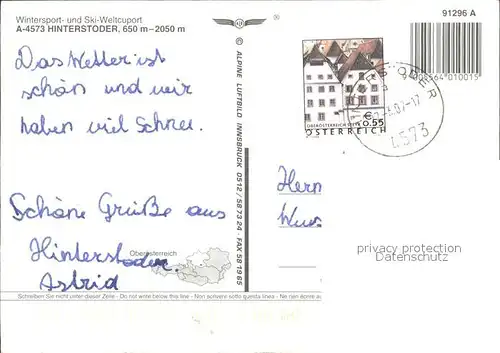 Wintersport- und Ski-Weltcuport
A-4573 HINTERSTODER, 650 m – 2050 m
91296 A
Das Wetter ist
schön und wir
haben viel Schnee.
Schöne Grüße aus
Hinterstoder.
Astrid
Oberösterreich
© ALPINE LUFTBILD INNSBRUCK 0512 / 58 73 24 · FAX 58 19 65
€ 0.55
ÖSTERREICH
4573
Herrn
privacy protection
Datenschutz
Schreiben Sie nicht unter dieser Zeile - Do not write below this line - Non scrivere sotto questa linea - Ne rien écrire